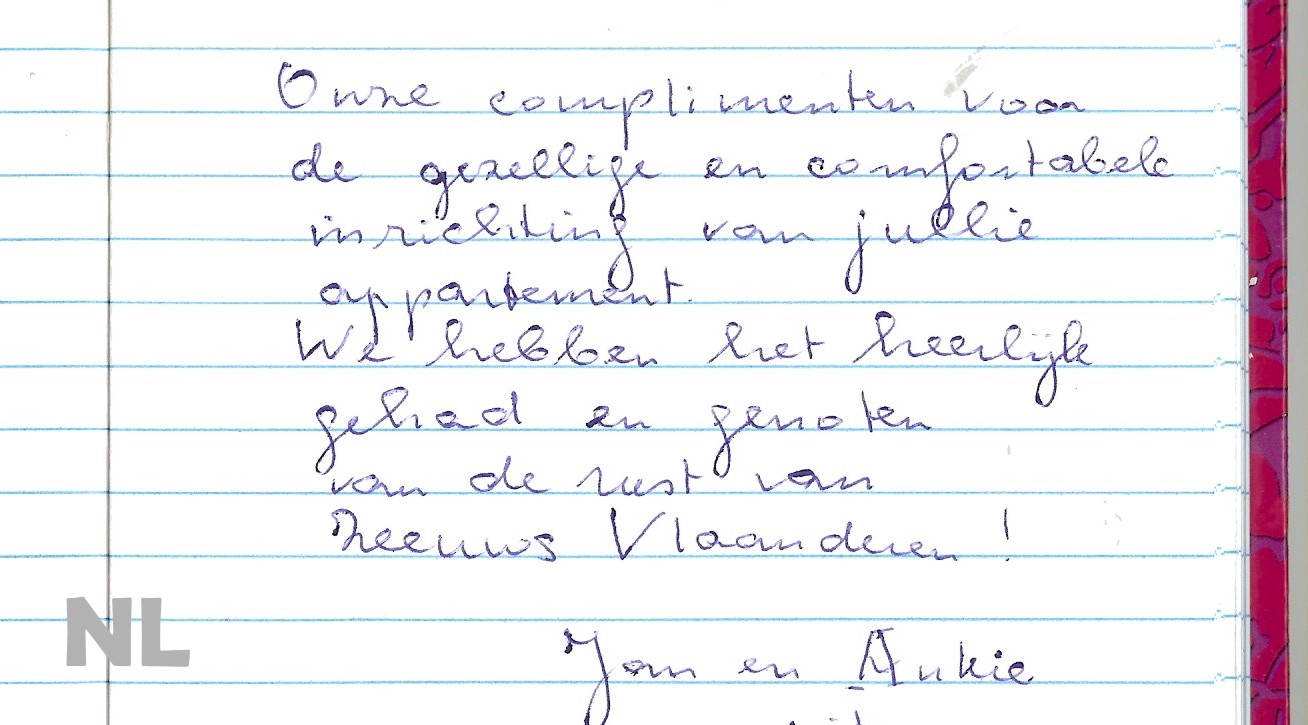 Onze complimenten voor
de gezellige en comfortabele
inrichting van jullie
appartement.
We hebben het heerlijk
gehad en genoten
van de rust van
Zeeuws Vlaanderen !
NL
Jan en Ankie